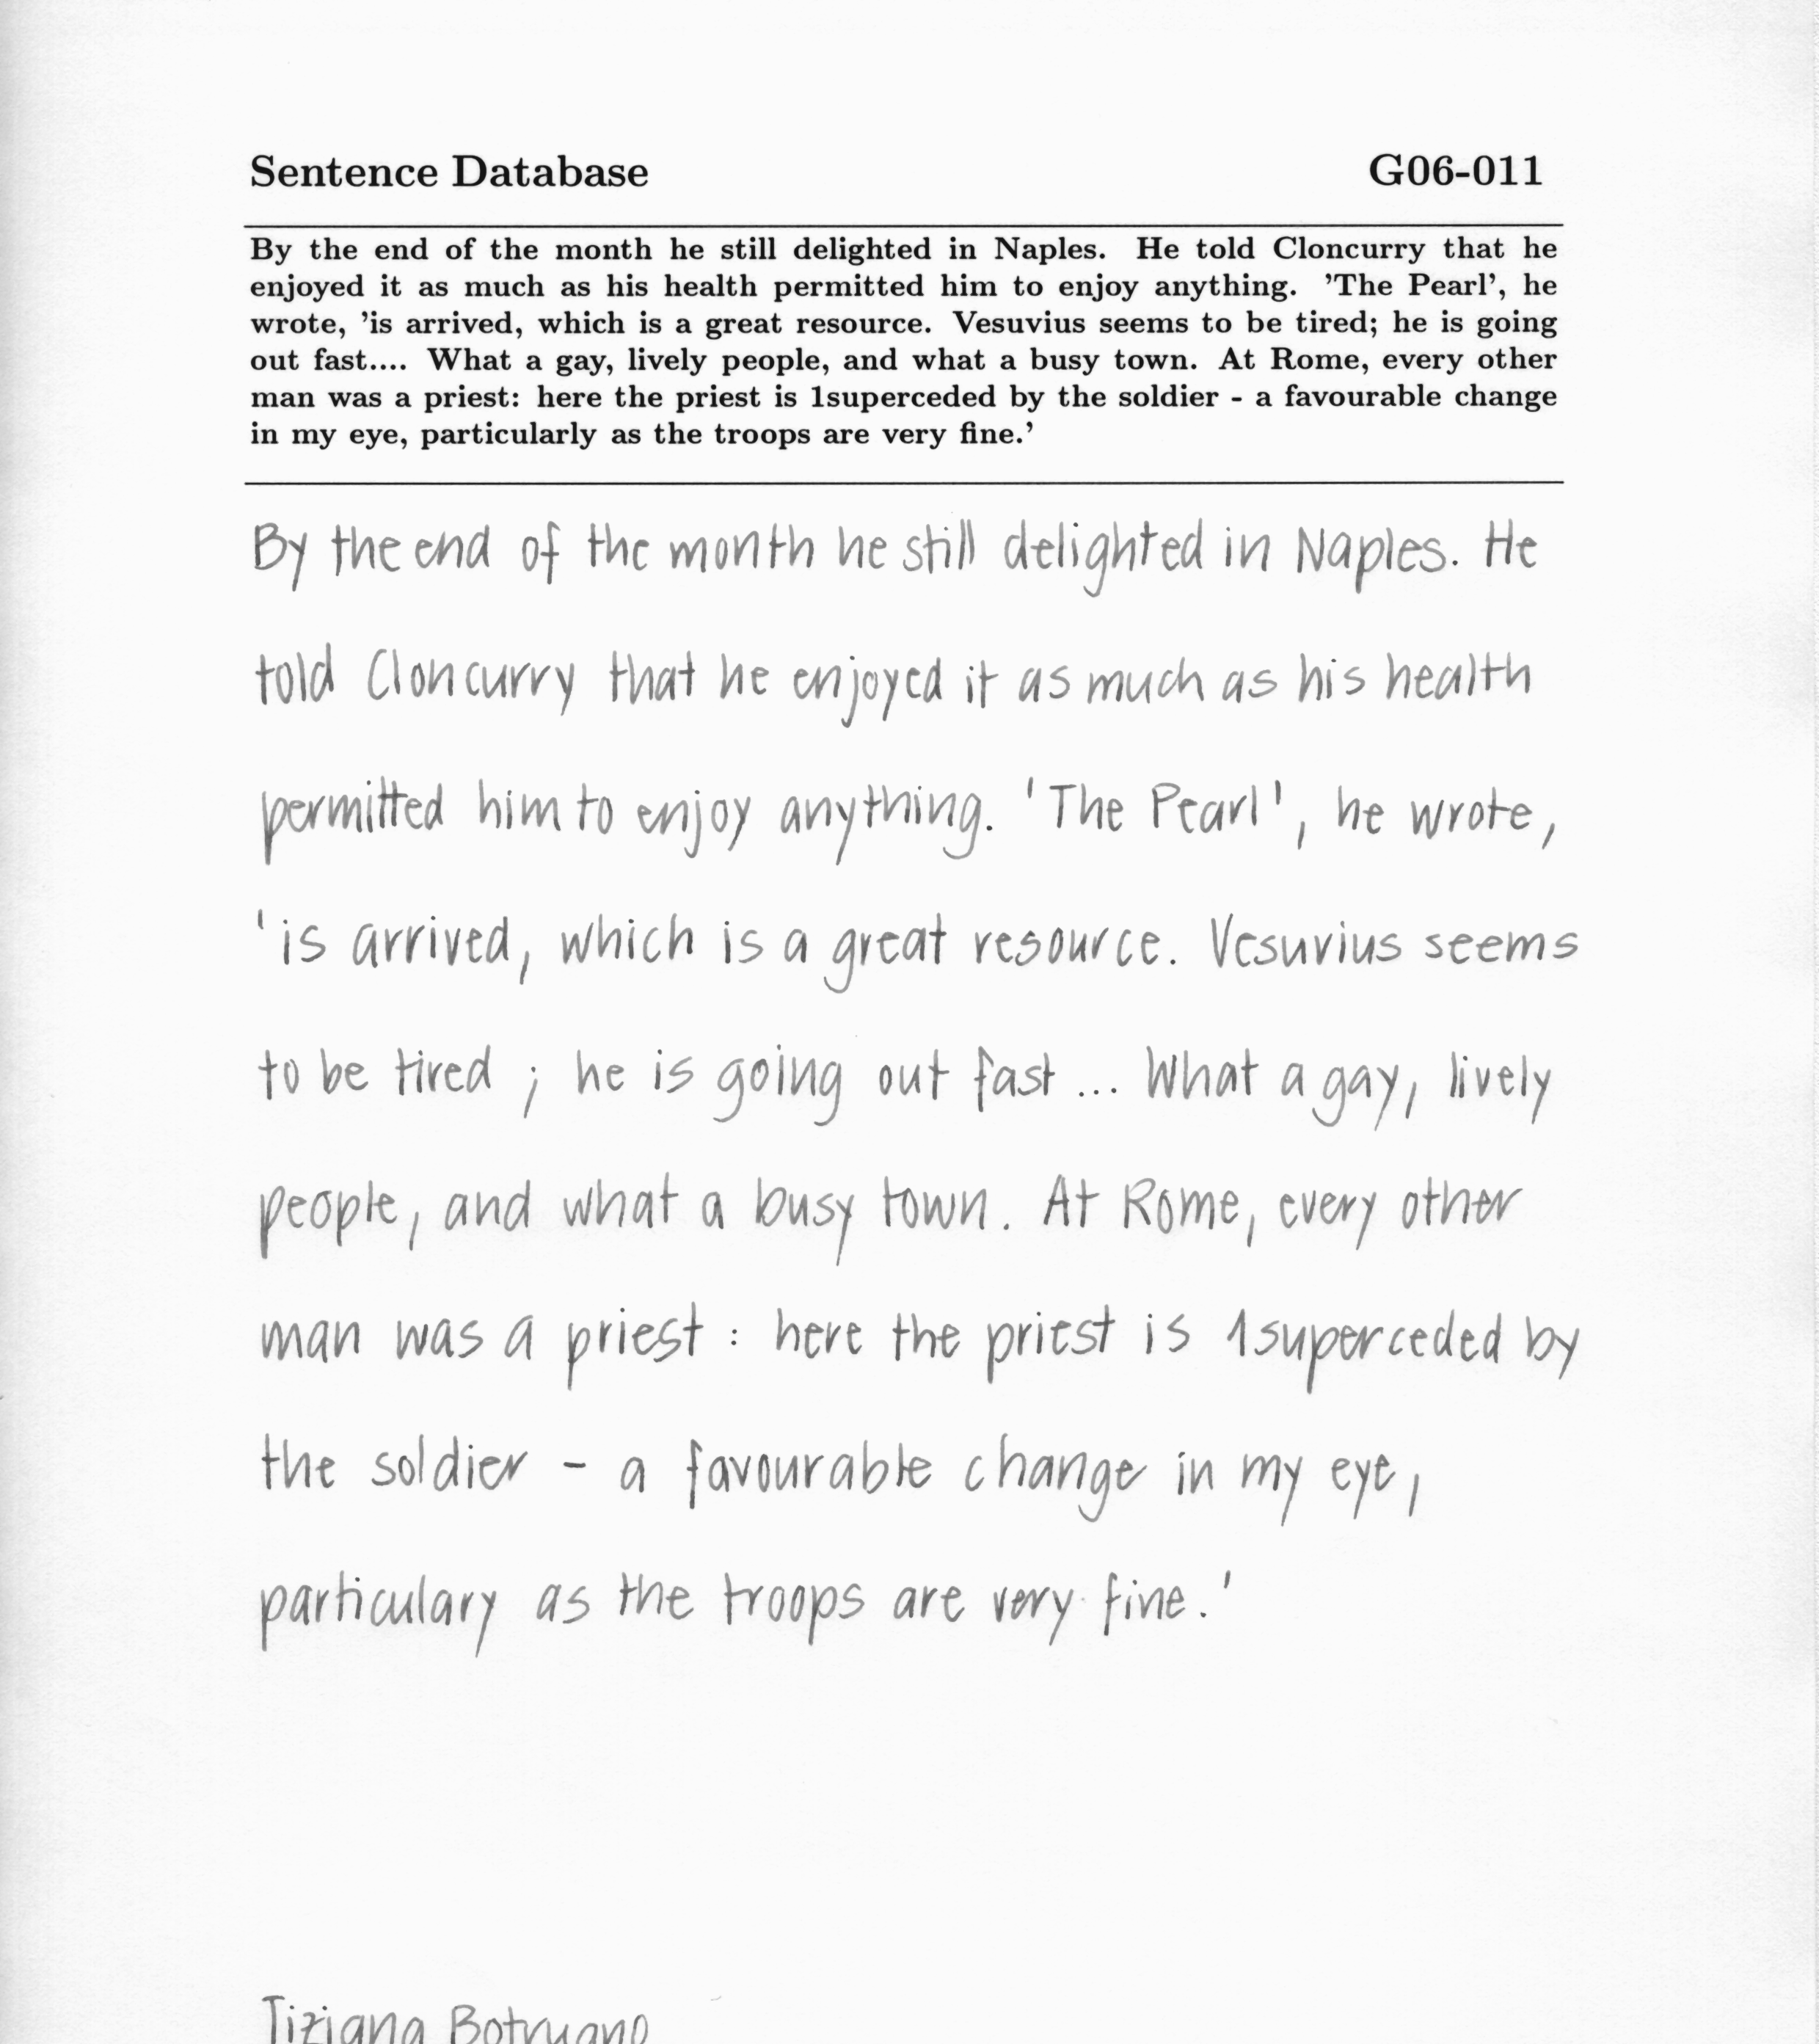 Sentence Database G06-011
By the end of the month he still delighted in Naples. He told Cloncurry that he
enjoyed it as much as his health permitted him to enjoy anything. 'The Pearl', he
wrote, 'is arrived, which is a great resource. Vesuvius seems to be tired; he is going
out fast.... What a gay, lively people, and what a busy town. At Rome, every other
man was a priest: here the priest is 1superceded by the soldier - a favourable change
in my eye, particularly as the troops are very fine.'
By the end of the month he still delighted in Naples. He
told Cloncurry that he enjoyed it as much as his health
permitted him to enjoy anything. 'The Pearl', he wrote,
'is arrived, which is a great resource. Vesuvius seems
to be tired ; he is going out fast ... What a gay, lively
people, and what a busy town. At Rome, every other
man was a priest : here the priest is 1superceded by
the soldier - a favourable change in my eye,
particulary as the troops are very fine.'
Tiziana